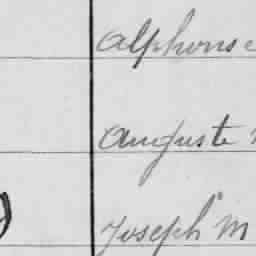 Alphonse
Auguste
Joseph M